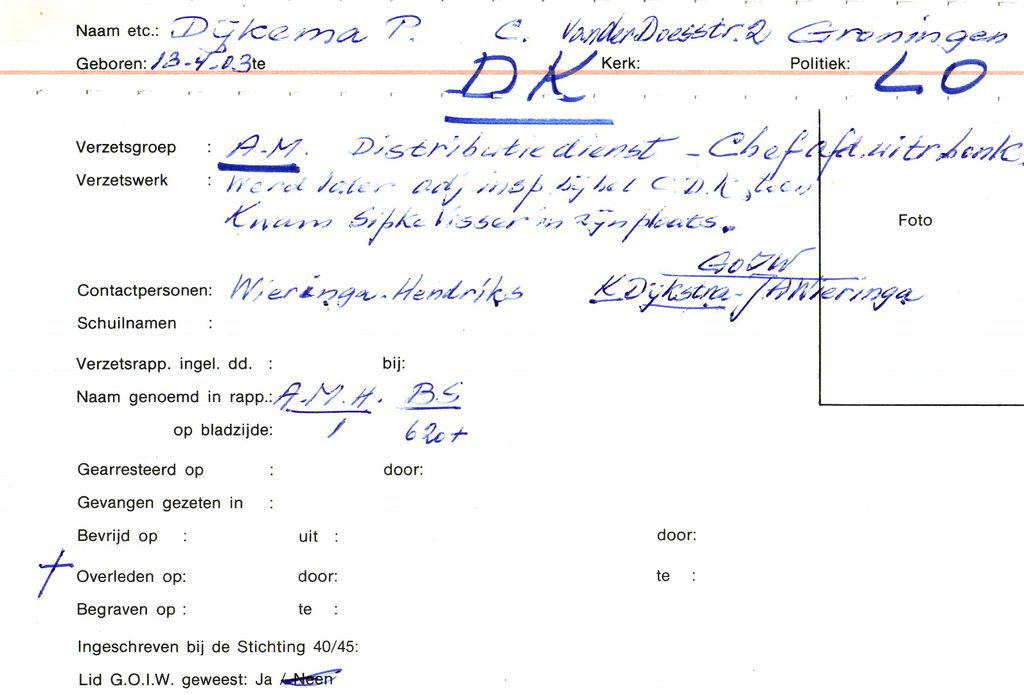 Naam etc.: Dijkema P. C. Van der Doesstr. 2 Groningen
Geboren: 13-4-03 te Kerk: Politiek:
DK LO
Verzetsgroep : A.M. Distributiedienst - Chef afd. uitr. bonk
Verzetswerk : Werd later adj insp bij het C.D.K, toen
Kwam Sipke Visser in zijn plaats.
Foto
GOIW
Contactpersonen: Wieringa-Hendriks K Dijkstra - JA Wieringa
Schuilnamen :
Verzetsrapp. ingel. dd. : bij:
Naam genoemd in rapp.: A.M.H. BS
op bladzijde: 1 620+
Gearresteerd op : door:
Gevangen gezeten in :
Bevrijd op : uit : door:
+ Overleden op: door: te :
Begraven op : te :
Ingeschreven bij de Stichting 40/45:
Lid G.O.I.W. geweest: Ja / Neen